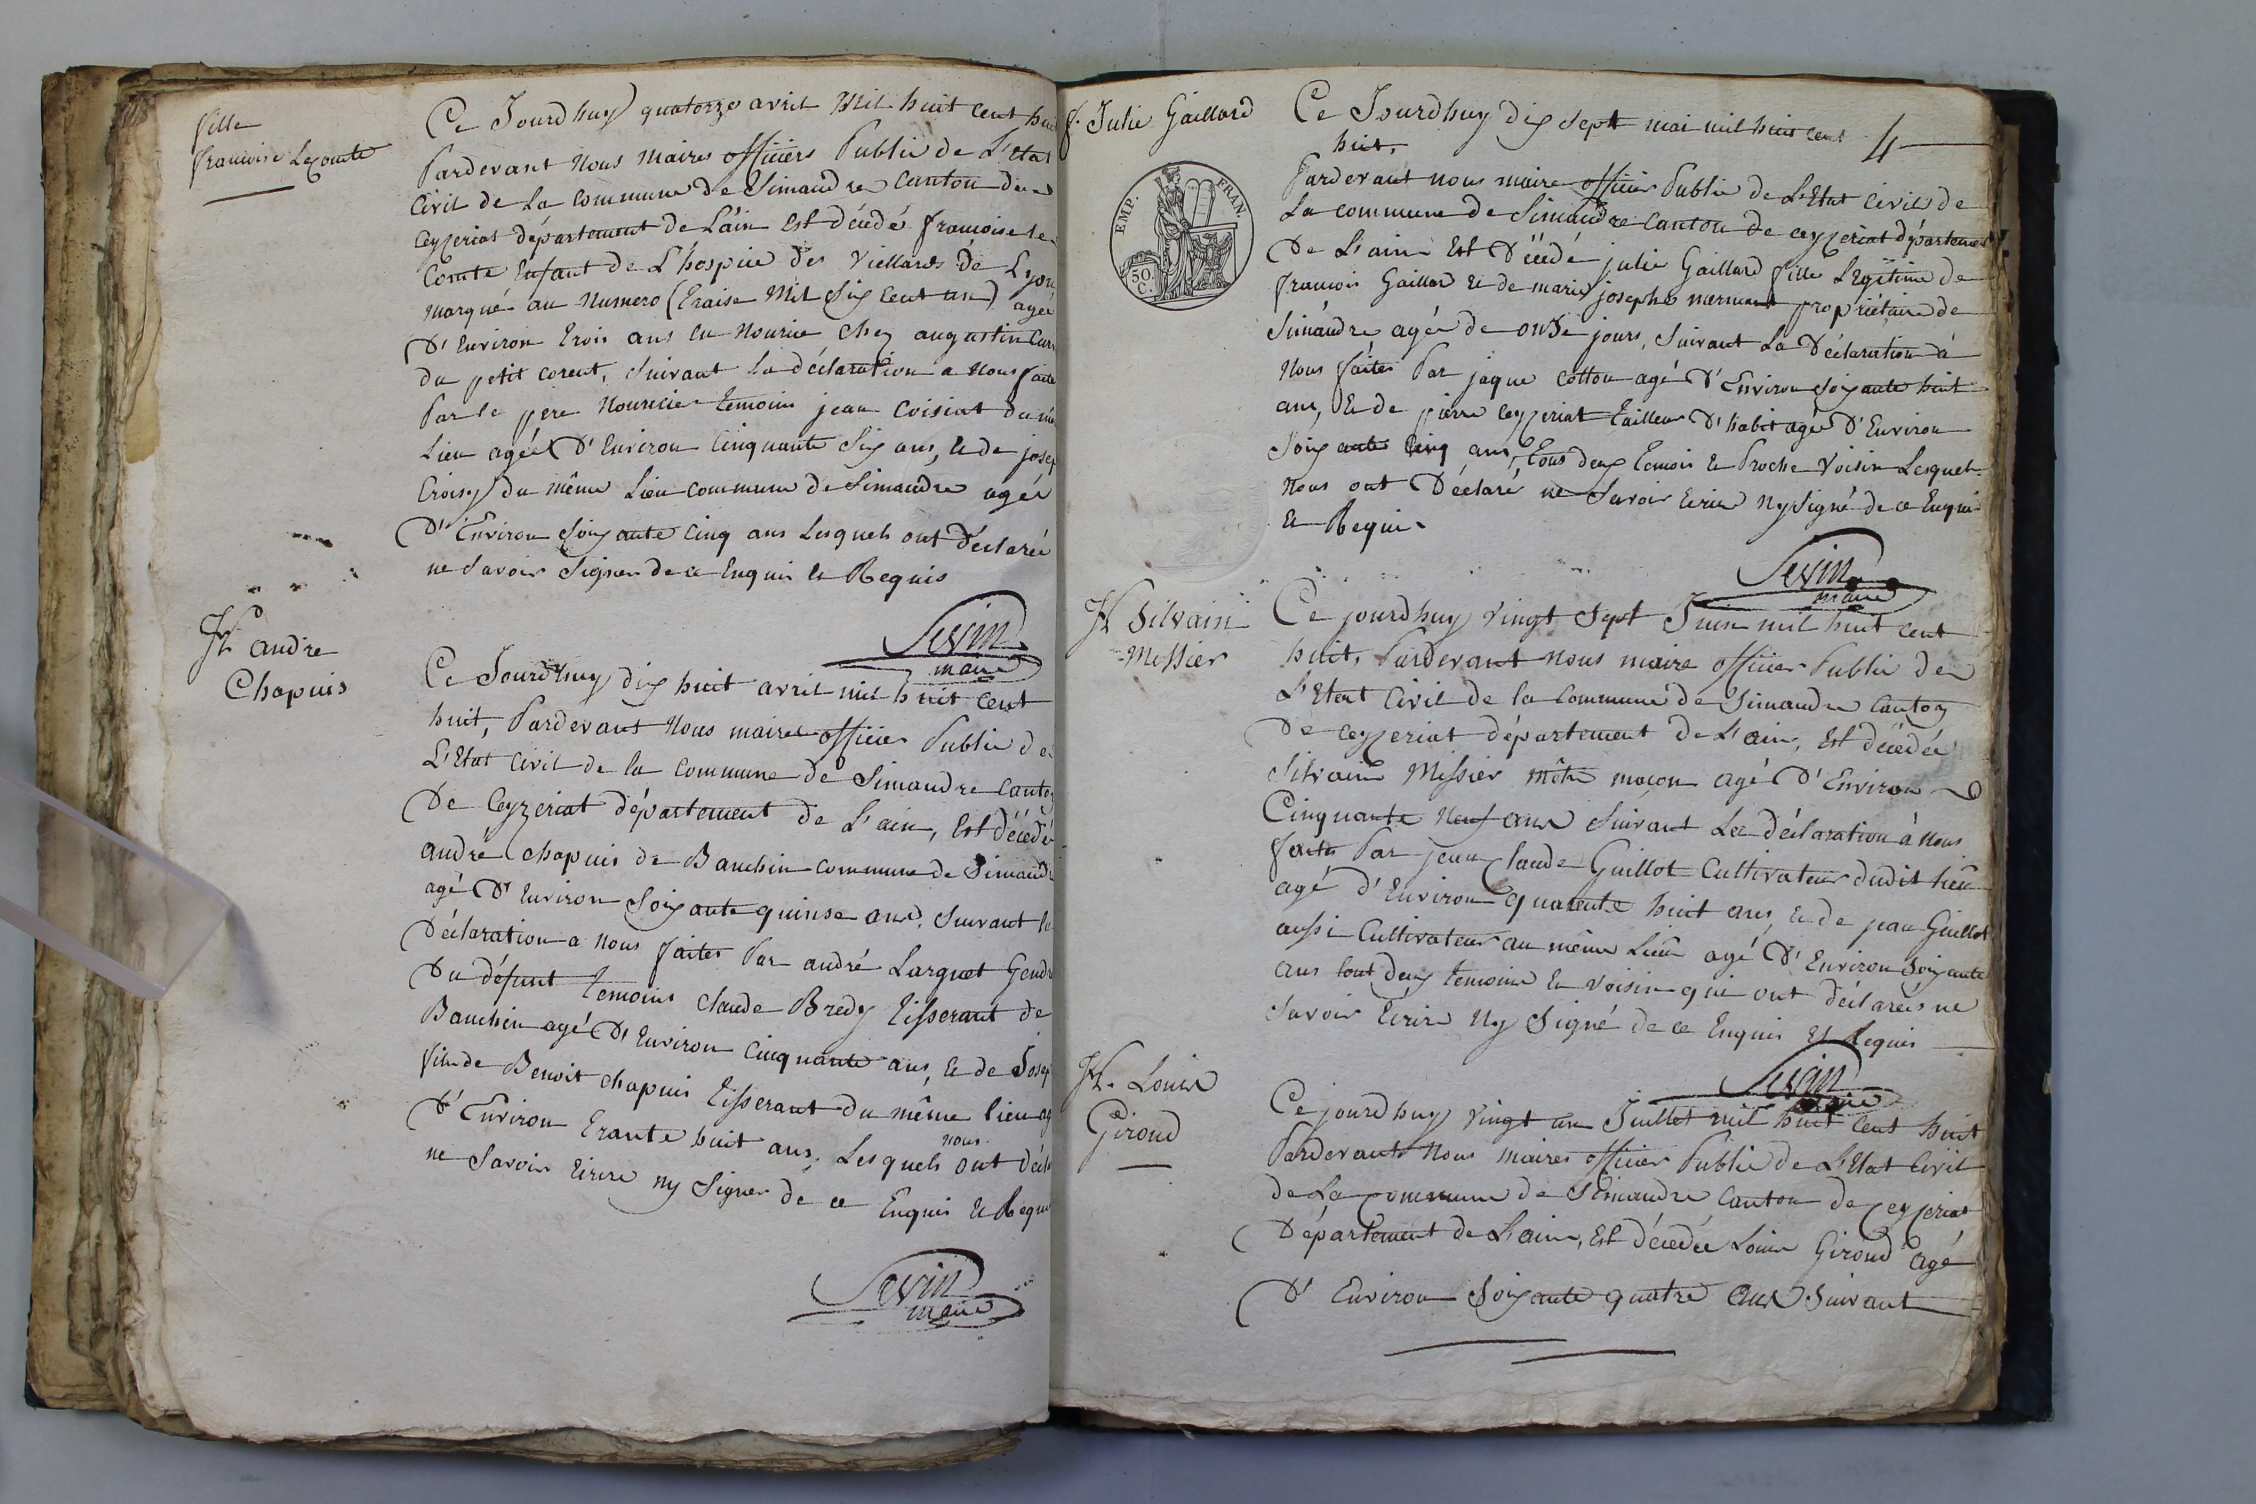 fille
francoise Lecomte
Ce Jourdhuy quatorze avril Mil huit cent hui
Pardevant Nous Maires officiers Public de L'Etat
Civil de La Commune de Simandre Canton de
Ceyzeriat département de L'ain Est décédé francoise le
Comte Enfant de L'hospice des Viellards de Lyon
marqué au Numero (Traise Mil Six Cent un) agée
D'Environ trois ans En Nourice chez augustin
du petit corent, Suivant la déclaration a Nous faite
Par le pere Nouricier temoins jean Coisiat du mê
Lieu agée D'Environ Cinquante Six ans, & de josep
Croisy du même Lieu commune de Simandre agée
D'Environ Soixante Cinq ans Lesquels ont déclarée
ne Savoir Signer de ce Enquis & Requis
Sevin
maire
H andre
Chapuis
Ce Jourdhuy dix huit avril mil huit cent
huit, Pardevant Nous maires officier Public de
L'Etat Civil de la Commune de Simandre Canton
De Ceyzeriat département de L'ain, Est décédé
andré Chapuis de Banchin commune de Simandr
agé D'Environ Soixante quinse ans, Suivant la
Déclaration a Nous faites Par andré Larguet Gendr
Du défunt temoins Claude Bredy tisserant de
Banchin agé D'Environ Cinquante ans, & de Josep
fils de Benoit chapuis tisserant du même lieu ag
D'Environ trante huit ans, Lesquels nous ont décla
ne Savoir Eirire ny Signer de ce Enquis & Requi
Sevin
maire
f. Julie Gaillard
EMP. FRAN.
50.
C.
4
Ce Jourdhuy dix Sept mai mil huit cent
huit,
Pardevant nous maire officier Public de L'Etat Civil de
La commune de Simandre Canton de ceyzeriat département
De L'ain Est Décédé julie Gaillard fille Légitime de
francois Gaillar & de marie josephe mermant propriétaire de
Simandre agée de onze jours, Suivant La Déclaration à
Nous faites Par jaque Cotton agé D'Environ Soixante huit
ans, & de pierre Ceyzeriat tailleur D'habit agé D'Environ
Soixante Cinq ans, tous deux temoin & Proche Voisin Lesquel
Nous ont Déclaré ne Savoir Ecrire Ny Signé de ce Enqui
& Requi
Sevin
maire
H Silvain
Messier
Ce jourdhuy Vingt Sept Juin mil huit cent
huit, Pardevant nous maire officier Public de
L'Etat Civil de la Commune de Simandre Canton
De Ceyzeriat département de L'ain, Est décédée
Silvain Messier mêtre maçon agé D'Environ
Cinquante Neuf ans Suivant La déclaration à nous
faite Par jean Claude Guillot Cultivateur dudit lieu
agé d'Environ quarente huit ans, & de jean Guillot
aussi Cultivateur au même Lieu agé D'Environ Soixante
ans tout deux temoins & Voisin qui ont déclarées ne
Savoir Eirire Ny Signé de ce Enquis Et Requis
Sevin
maire
H. Louis
Giroud
Ce jourdhuy Vingt un Juillet mil huit Cent huit
Pardevant Nous maires officier Public de L'Etat Civil
de La Commune de Simandre Canton de Ceyzeriat
Département de L'ain, Est décédée Louis Giroud agé
D'Environ Soixante quatre ans Suivant